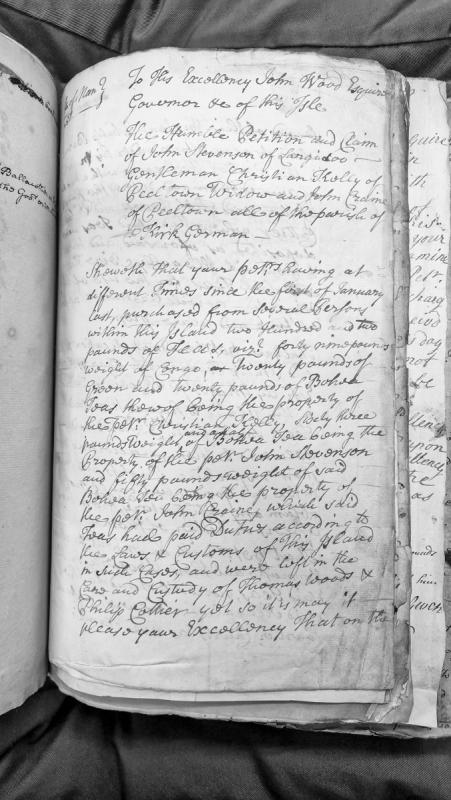 Isle of Man
To His Excellency John Wood Esquire
Governor &c of this Isle
The Humble Petition and Claim
of John Stevenson of
Gentleman Christian Kelly of
Peeltown Widow and John Craine
of Peeltown all of the parish of
Kirk German
Sheweth that your petrs having at
different Times since the first of January
last, purchased from several Persons
within this Island two Hundred and two
pounds of Teas, vizt forty nine pounds
weight of Congo, twenty pounds of
Green and twenty pounds of Bohea
Teas thereof being the property of
the petr Christian Kelly, Sixty three
pounds weight of Bohea Tea being the
Property of the petr John Stevenson
and fifty pounds weight of said
Bohea Tea being the property of
the petr John Craine, which said
Teas had paid Duties according to
the Laws & Customs of this Island
in such Cases, and were left in the
Care and Custody of Thomas Woods &
Philip Cottier yet so it is may it
please your Excellency That on the